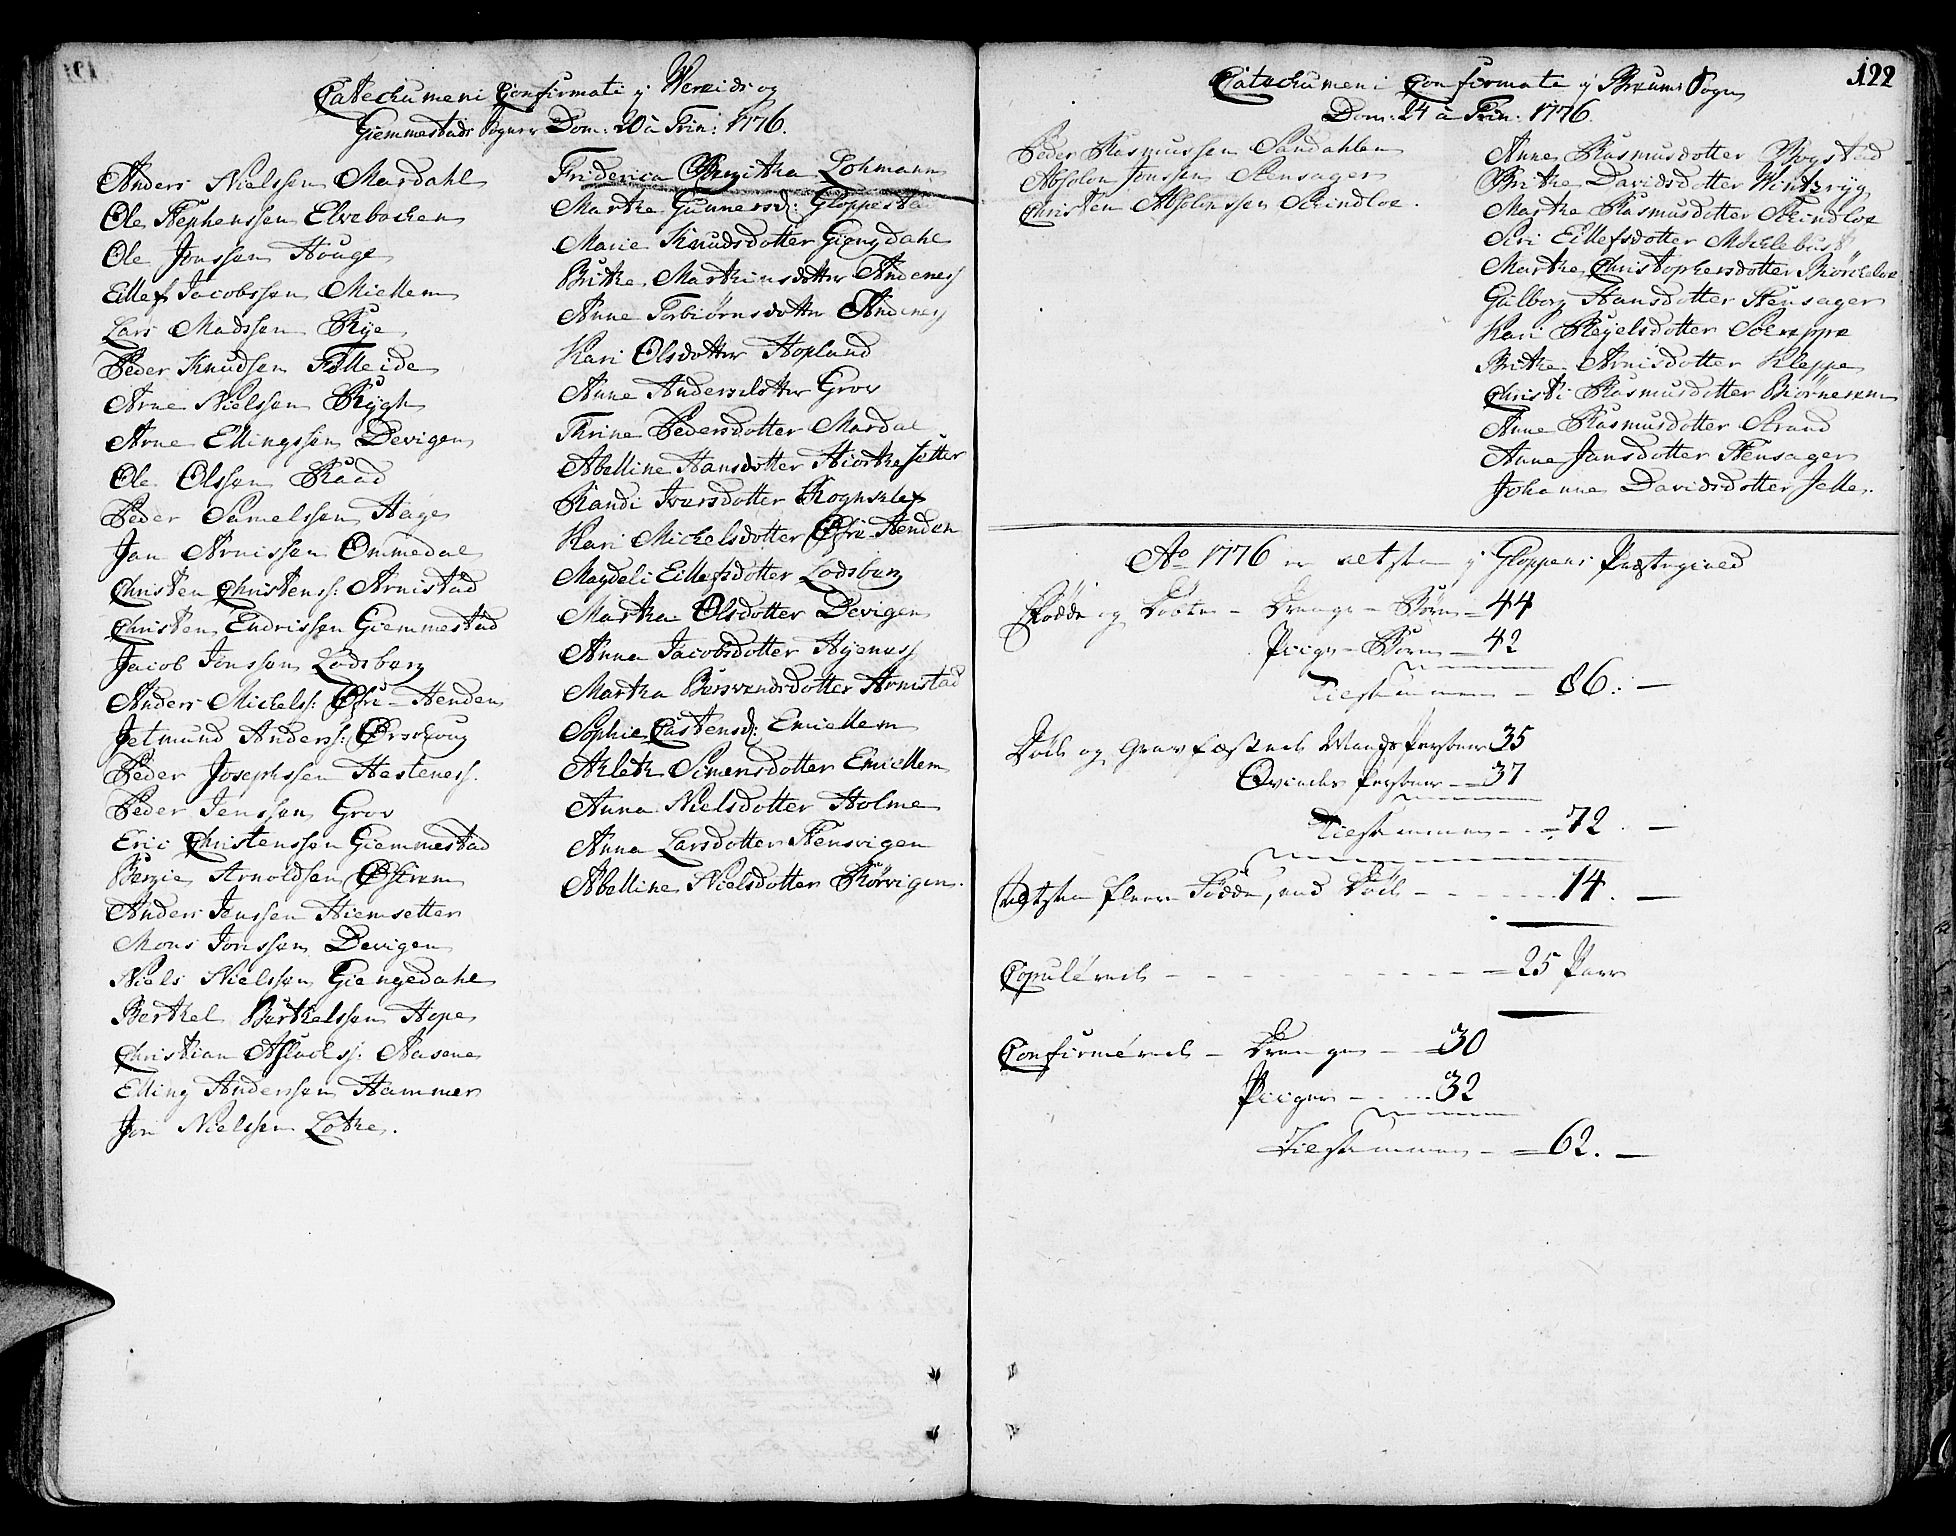 Catechumeni Confirmati y Vereids og
Giemmestads Sogner Dom: 20 à Trin: 1776.
Anders Nielssen Mardahl
Ole Stephenssen Elvebacken
Ole Jonssen Houge
Eillef Jacobssen Miellem
Lars Madssen Rye
Peder Knudsen Fölleide
Arne Nielssen Rygh
Arne Ellingssen Devigen
Ole Olssen Raad
Peder Samelssen Hage
Jan Arnissen Ommedal
Christen Christenss: Arnistad
Christen Endrissen Giemmestad
Jacob Jonssen Lodsberg
Anders Michelss: Øfri-Henden
Jetmund Anderss: Ørschoug
Peder Josephssen Hesteness.
Peder Jenssen Grov
Eric Christenssen Giemmestad
Berzie Arnoldsen Østrem
Anders Jenssen Hiemsetter
Mons Jonssen Devigen
Niels Nielssen Giengedahl
Berthel Berthelssen Hope
Christian Aslachs: Aasene
Elling Anderssen Hammer
Jon Nielssen Lothe.
Friderica Birgitha Lohmann
Marthe Gunnersd: Gloppestad
Marie Knudsdotter Giengdahl
Brithe Marthinsdotter Andenes
Anne Torbiørnsdotter Andenes
Kari Olsdotter Hopland
Anne Andersdotter Grov
Thrine Pedersdotter Mardal
Abelline Hansdotter Hiorthesetter
Randi Ivarsdotter Rognklef
Kari Michelsdotter Øfri-Henden
Magdeli Eillefsdotter Lodsberg
Martha Olsdotter Devigen
Anna Jacobsdotter Hyeness
Martha Bersvendsdotter Arnistad
Sophie Castensd: Emiellem
Athlethe Simensdotter Emiellem
Anna Nielsdotter Holme
Anna Larsdotter Stensvigen
Abelline Nielsdotter Rørvigen.
122
Catechumeni Confirmate y Breums Sogn
Dom: 24 à Trin: 1776.
Peder Rasmussen Sandahlen
Absolon Jonssen Stensager
Christen Absolonssen Skindloe.
Anne Rasmusdotter Mygstad
Brithe Davidsdotter
Marthe Rasmusdotter Skindloe
Siri Eillefsdotter Micklebust
Marthe Christophersdotter Biørcheloe
Gulborg Hansdotter Stensager
Kari Reyelsdotter Skreppe
Brithe Arnisdotter Kleppe
Christi Rasmusdotter Biørnerem
Anne Rasmusdotter Strand
Anne Jansdotter Stensager
Johanne Davidsdotter Felle.
Ao 1776 er altsaa y Gloppens Præstegield
Fødde og Døbte - Drenge - Børn = 44
Piige - Børn = 42
Tilsammen - 86. -
Døde og Gravfæstede Mands Personer 35
Qvindes Personer = 37
Tilsammen - = 72. -
Altsaa fleere Fødde, end Døde - - - 14. -
Copulerede - - - = 25 Parr
Confirmerede - Drenge - = 30
Piiger - . . . 32
Tilsammen - = 62. -